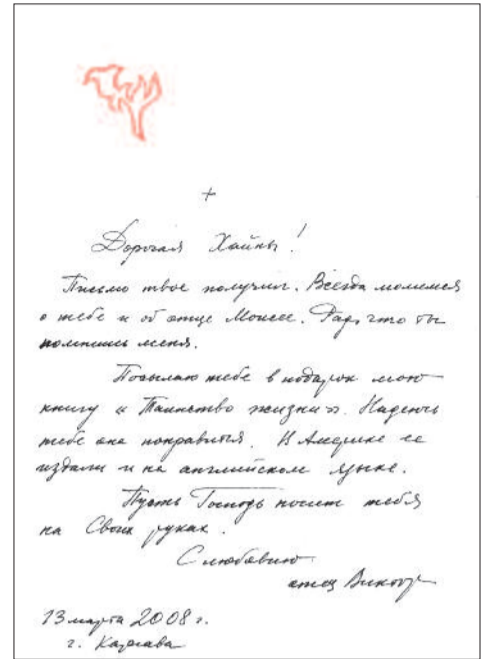 +
Дорогая Хайны!
Письмо твое получил. Всегда молимся
о тебе и об отце Моисее. Рад, что ты
помнишь меня.
Посылаю тебе в подарок мою
книгу «Таинство жизни». Надеюсь
тебе она понравится. В Америке ее
издали и на английском языке.
Пусть Господь носит тебя
на Своих руках.
С любовию
отец Виктор
13 марта 2008 г.
г. Карсава